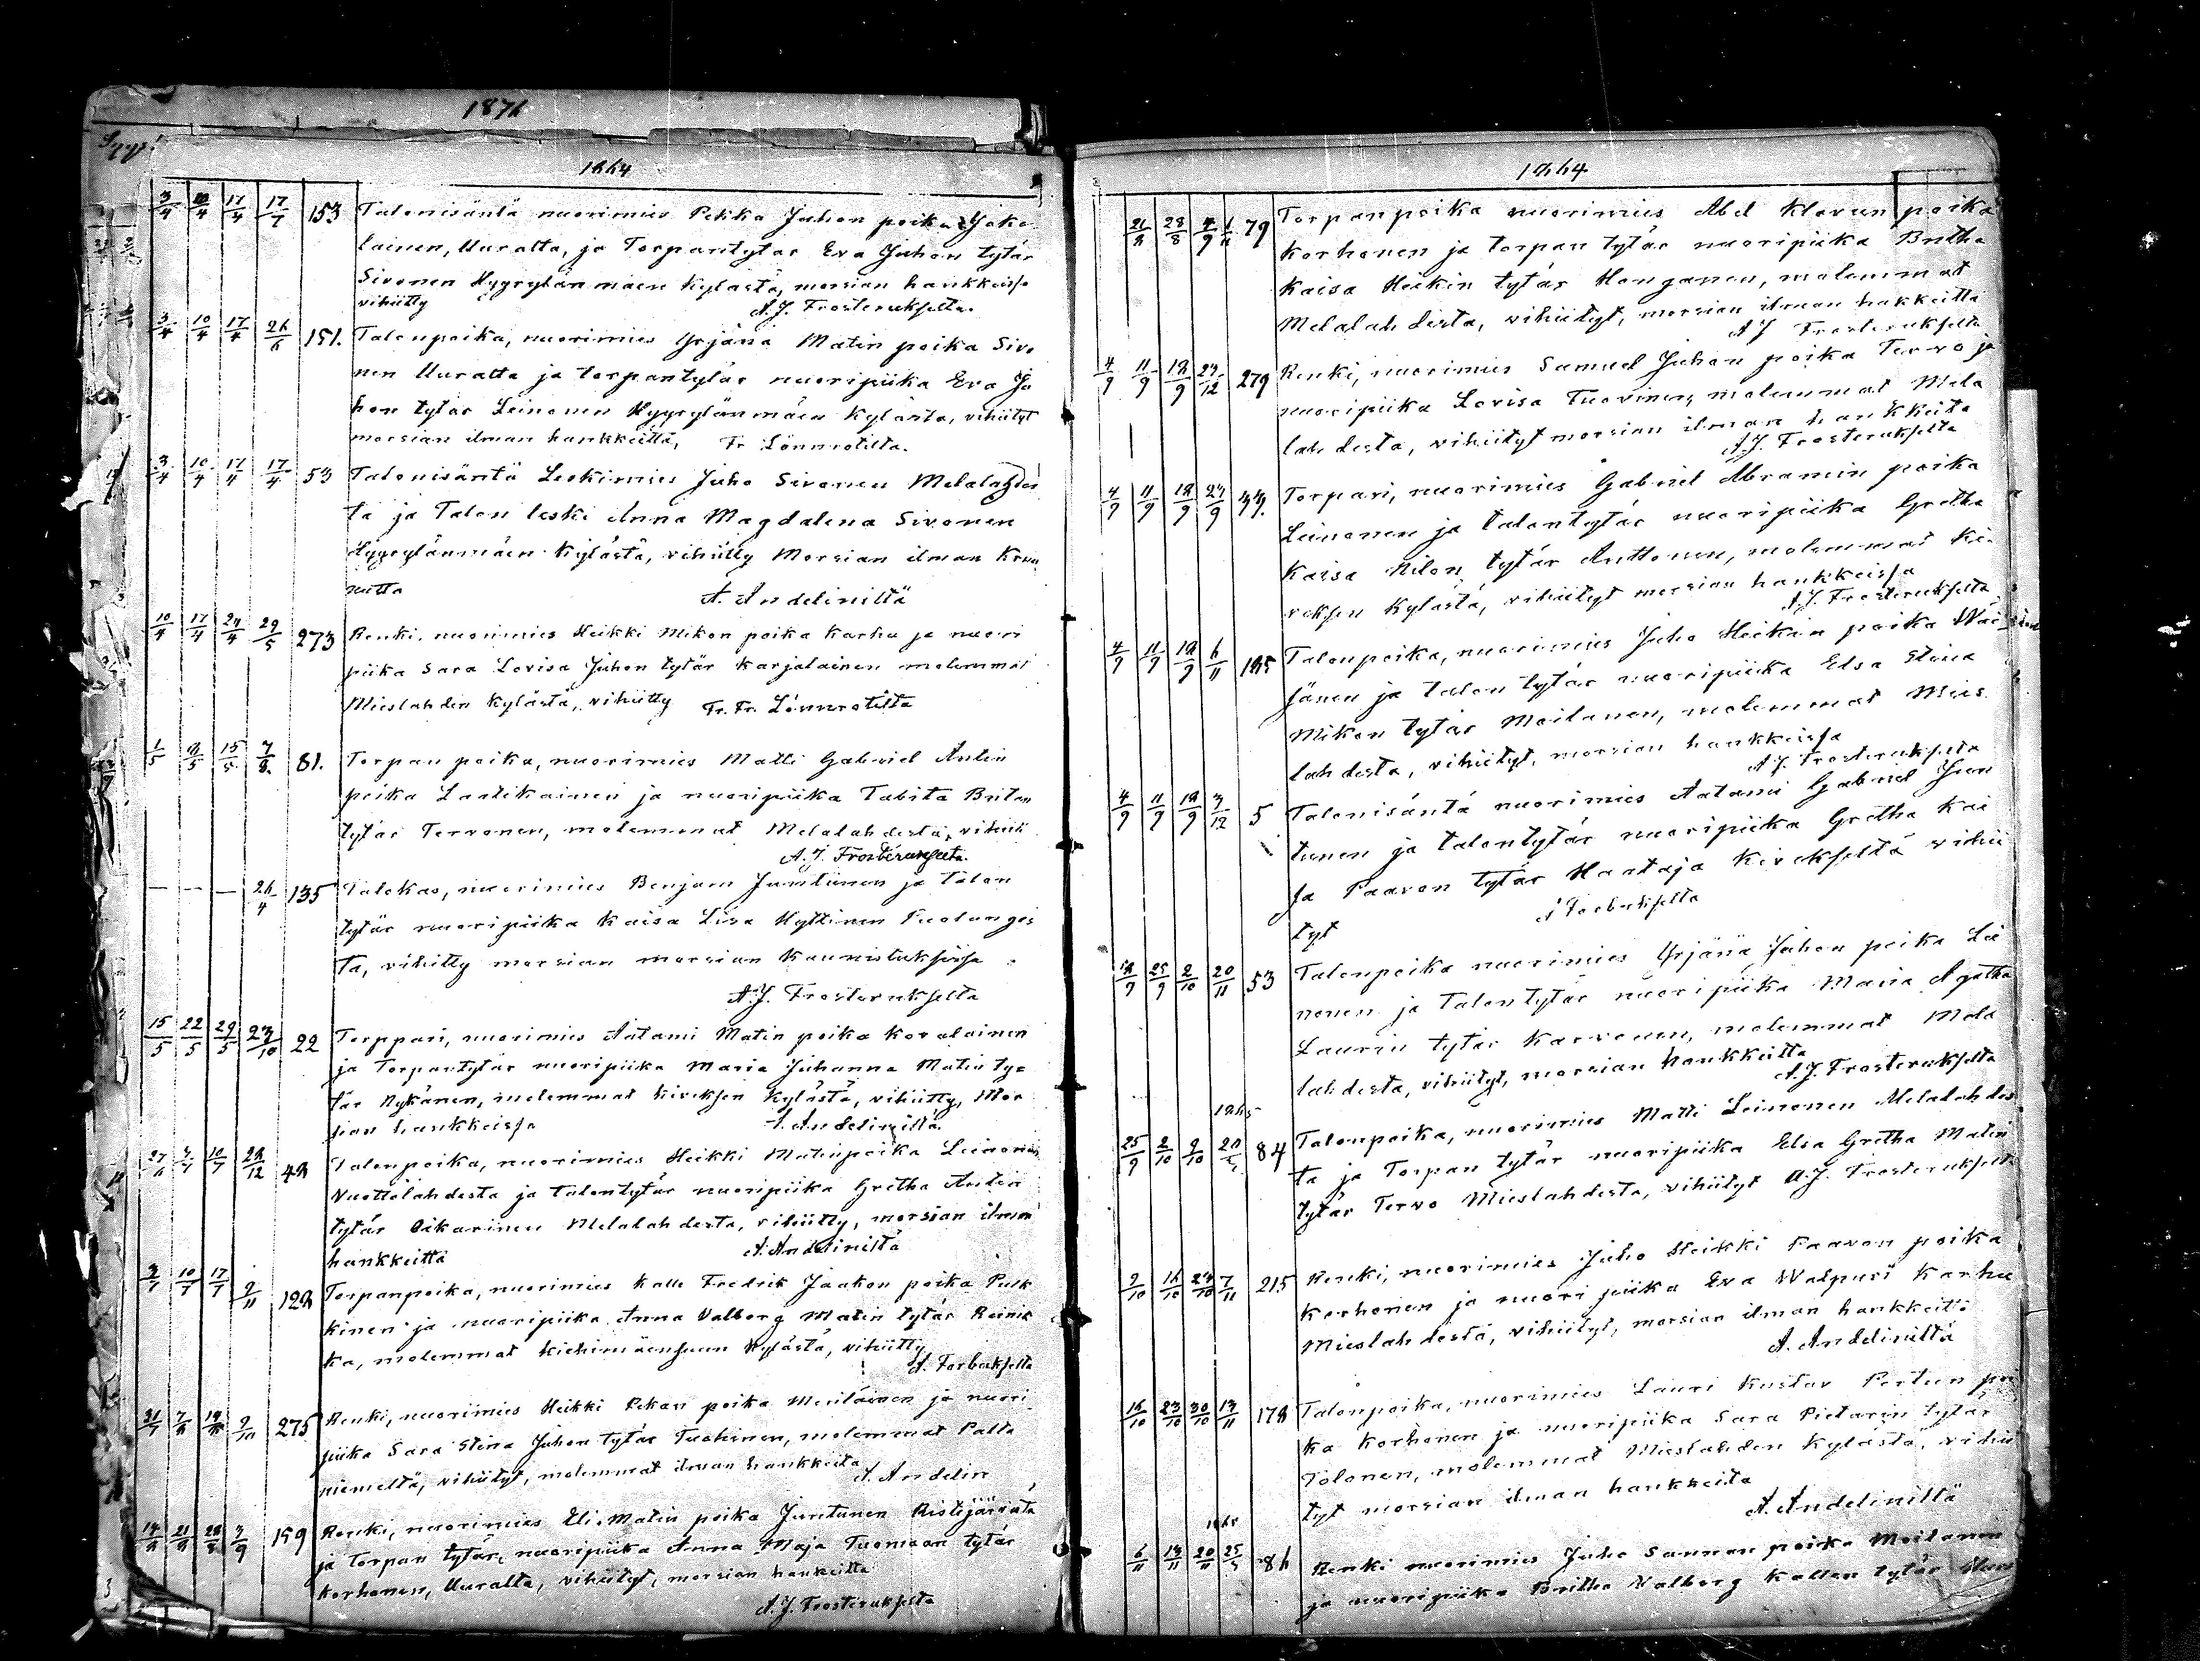 1871
1864
3/4 10/4 17/4 17/7 153 Talonisäntä nuorimies Pekka Juhon poika Joke
lainen, Uuralta, ja Torpantytar Eva Juhon tytär
Sivonen Hyyrylän mäen kylästä, morsian hankkeissa
vihiitty A.J. Frosterukselta.
3/4 10/4 17/4 26/6 151. Talonpoika, nuorimies Yrjänä Matin poika Sivo
nen Uuralta ja torpantytär nuoripiika Eva Ju
hon tytär Leinonen Hyyrylänmäen kylästä, vihiityt
morsian ilman hankkeitta, Fr Lönnrotilta.
3/4 10/4 17/4 17/4 53 Talonisäntä Leskimies Juho Sivonen Melalahdes
ta ja Talon leski Anna Magdalena Sivonen
Hyyrylänmäen kylästä, vihiitty Morsian ilman Kruu
nutta A. Andeliniltä
10/4 17/4 24/4 29/5 273 Renki, nuorimies Heikki Mikon poika Karhu ja nuori
piika Sara Lovisa Juhon tytär Karjalainen molemmat
Mieslahden kylästä, vihiitty Fr. Fr. Lönnrotilta
1/5 8/5 15/5 7/8. 81. Torpan poika, nuorimies Matti Gabriel Antin
poika Lantikainen ja nuoripiika Tabita Britan
tytär Tervonen, molemmat Melalahdesta, vihiit
A.J. Frosterukselta.
— — — 26/4 135 Talokas, nuorimies Benjam Juntunen ja talon
tytär nuoripiika Kaisa Lisa Hyttinen Puolangos
ta, vihitty morsian morsian kaunistuksissa
A.J. Frosterukselta
15/5 22/5 29/5 23/10 22 Torppari, nuorimies Aatami Matin poika Kovalainen
ja Torpantytär nuoripiika Maria Juhanna Matin ty=
tär Nykänen, molemmat Kiveksen kylästä, vihiitty, Mor
sian hankkeissa A. Andeliniltä
3/7 10/7 28/12 48 Talonpoika, nuorimies Heikki Matinpoika Leinonen
Vuottolahdesta ja talontytär nuoripiika Gretha Antin
tytär Oikarinen Melalahdesta, vihiitty, morsian ilman
hankkeitta A. Andeliniltä
3/7 10/7 17/7 9/11 128 Torpanpoika, nuorimies Kalle Fredrik Jaakon poika Pulk
kinen ja nuoripiika Anna Valborg Matin tytär Reinik
ka, molemmat Kiehimäensuun kylästä, vihiitty
A. Forbukselta
31/7 7/8 14/8 9/10 275 Renki, nuoriimies Heikki Pekan poika Meriläinen ja nuori
piika Sara Stina Juhon tytär Tuohinen, molemmat Palta
niemeltä, vihiityt, molemmat ilman hankkeita
A. Andelin
14/8 21/8 28/8 3/9 159 Renki, nuorimies Eli Matin poika Juntunen Ristijärveltä
ja Torpan tytär, nuoripiika Anna Maja Tuomaan tytär
Korhonen, Uuralta, vihiityt, morsian hankeitta
A.J. Frosterukselta
1864
21/8 28/8 4/9 79 Torpanpoika nuorimies Abel Klavun poika
Korhonen ja torpan tytär nuoripiika Britha
Kaisa Heikin tytär Honganen, molemmat
Melalahdesta, vihiityt, morsian ilman hakkeitta
A J Frosterukselta
4/9 11/9 18/9 27/12 279 Renki, nuorimies Samuel Juhon poika Tervo ja
nuoripiika Lovisa Tuovinen, molemmat Mela
lahdesta, vihiityt morsian ilman hankkeita
A.J. Frosterukselta
4/9 11/9 18/9 27/9 Torpari, nuorimies Gabriel Abramin poika
Leinonen ja talontytär nuoripiika Gretha
Kaisa Nilon tytär Anttonen, molemmat Ki-
veksen kylästä, vihiityt morsian hankkeissa
A.J. Frosterukselta.
4/9 11/9 18/9 6/11 185 Talonpoika, nuorimies Juho Heikin poika Wäi
sänen ja talon tytär nuoripiika Elsa Stina
Mikon tytär Moilanen, molemmat Mies
lahdesta, vihiityt, morsian hankkeissa
A J. Frosterukselta
4/9 11/9 18/9 3/12 5 Talonisäntä nuorimies Aatami Gabriel Jun
tunen ja talontytär nuoripiika Gretha Kai
sa Paavon tytär Haataja Kivekseltä vihii
tyt A Forbukselta
18/9 25/9 2/10 20/11 53 Talonpoika nuorimies Yrjänä Juhon poika Lei
nonen ja talontytär nuoripiika Maria Agatha
Laurin tytär Karvonen, molemmat Mela
lahdesta, vihiityt, morsian hankkeitta
A.J. Frosterukselta
1865
25/9 2/10 9/10 84 Talonpoika, nuorimies Matti Leinonen Melalahdes
ta ja Torpan tytär nuoripiika Elsa Gretha Matin
tytär Tervo Mieslahdesta, vihiityt A.J. Frosterukselta
9/10 16/10 23/10 7/11 215 Renki, nuorimies Juho Heikki Paavon poika
Korhonen ja nuori piika Eva Walpuri Karhu
Mieslahdestä, vihiityt, morsian ilman hankkeitta
A. Andeliniltä
16/10 23/10 30/10 13/11 178 Talonpoika, nuorimies Lauri Kustav Pertun poi
ka Korhonen ja nuoripiika Sara Pietarin tytär
Tolonen, molemmat Mieslahden kylästä, vihii
tyt morsian ilman hankkeita
A. Andeliniltä
1865
6/11 13/11 20/11 25/5 86 Renki nuorimies Juho Sannan poika Moilanen
ja nuoripiika Britha Valborg Kallen tytär